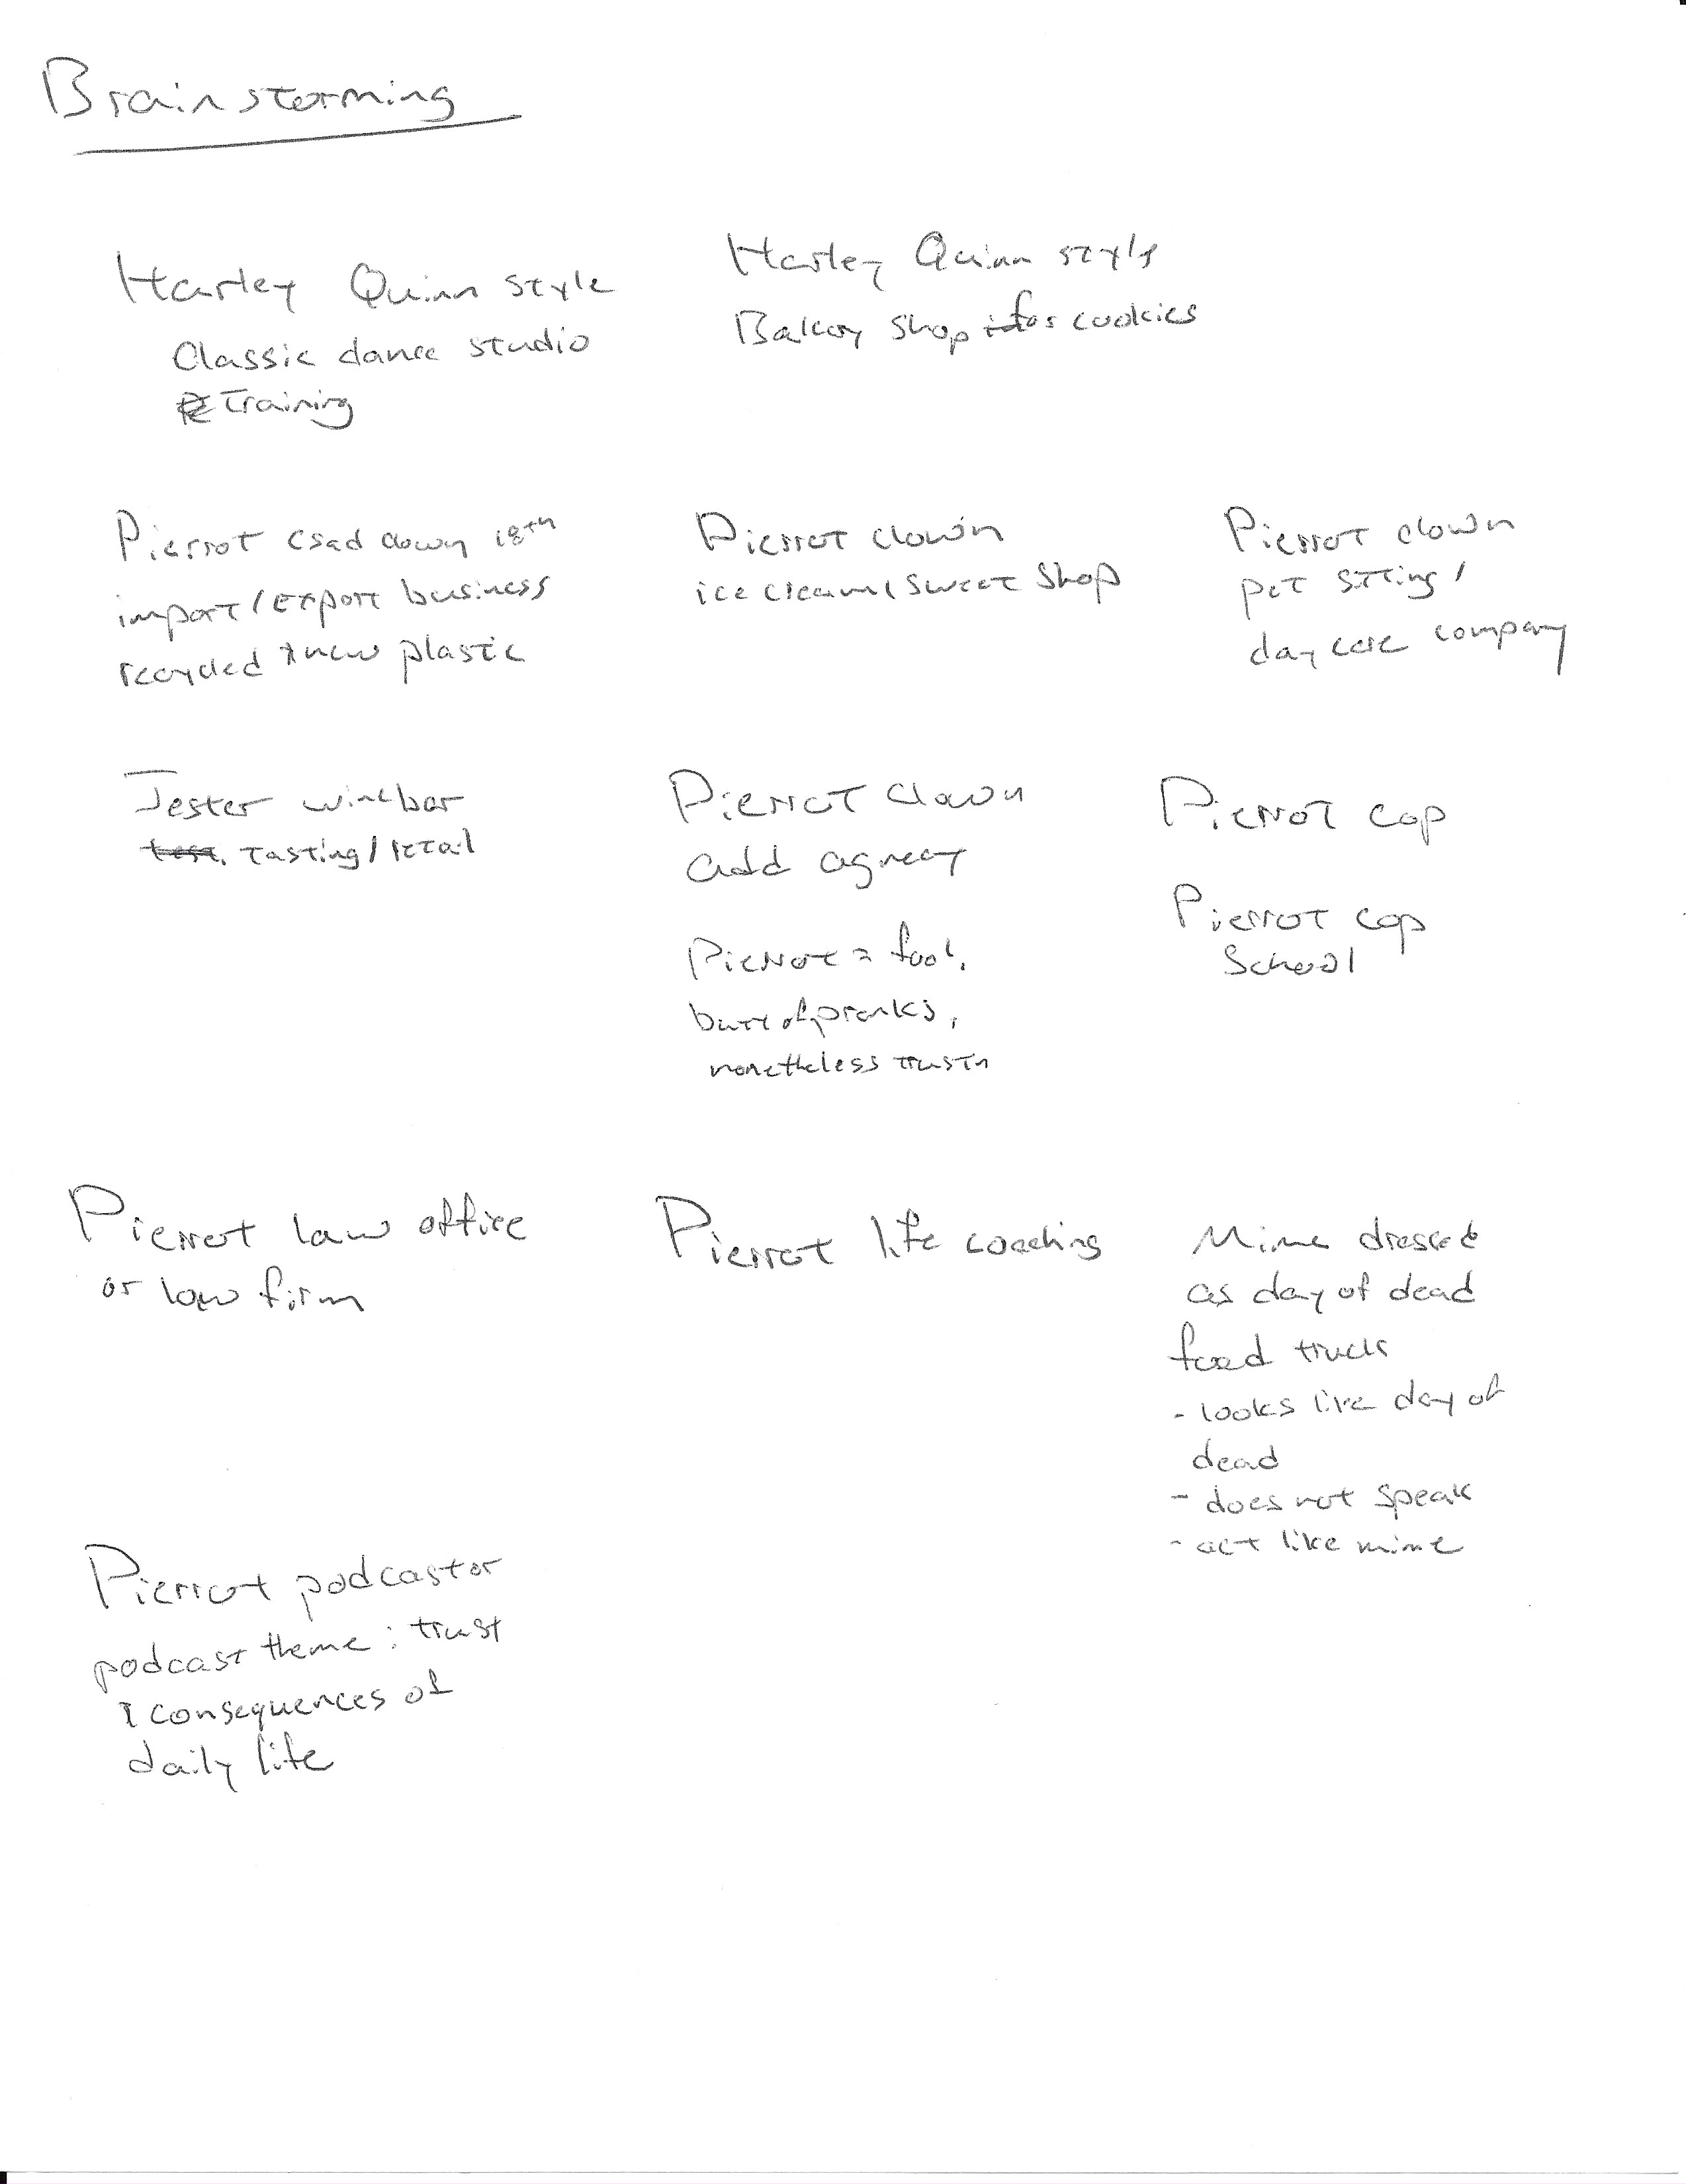 Brainstorming
Harley Quinn style
Classic dance studio
Training
Harley Quinn style
Bakery shop for cookies
Pierrot (sad clown 18th
import/export business
recycled & new plastic
Pierrot clown
ice cream/sweet shop
Pierrot clown
pet sitting/
day care company
Jester winebar
tasting/retail
Pierrot clown
add agency
Pierrot = fool,
butt of pranks,
nonetheless trustn
Pierrot cop
Pierrot cop
School
Pierrot law office
or law firm
Pierrot life coaching
Mime dressed
as day of dead
food truck
- looks like day of
dead
- does not speak
- act like mime
Pierrot podcastor
podcast theme: trust
& consequences of
daily life